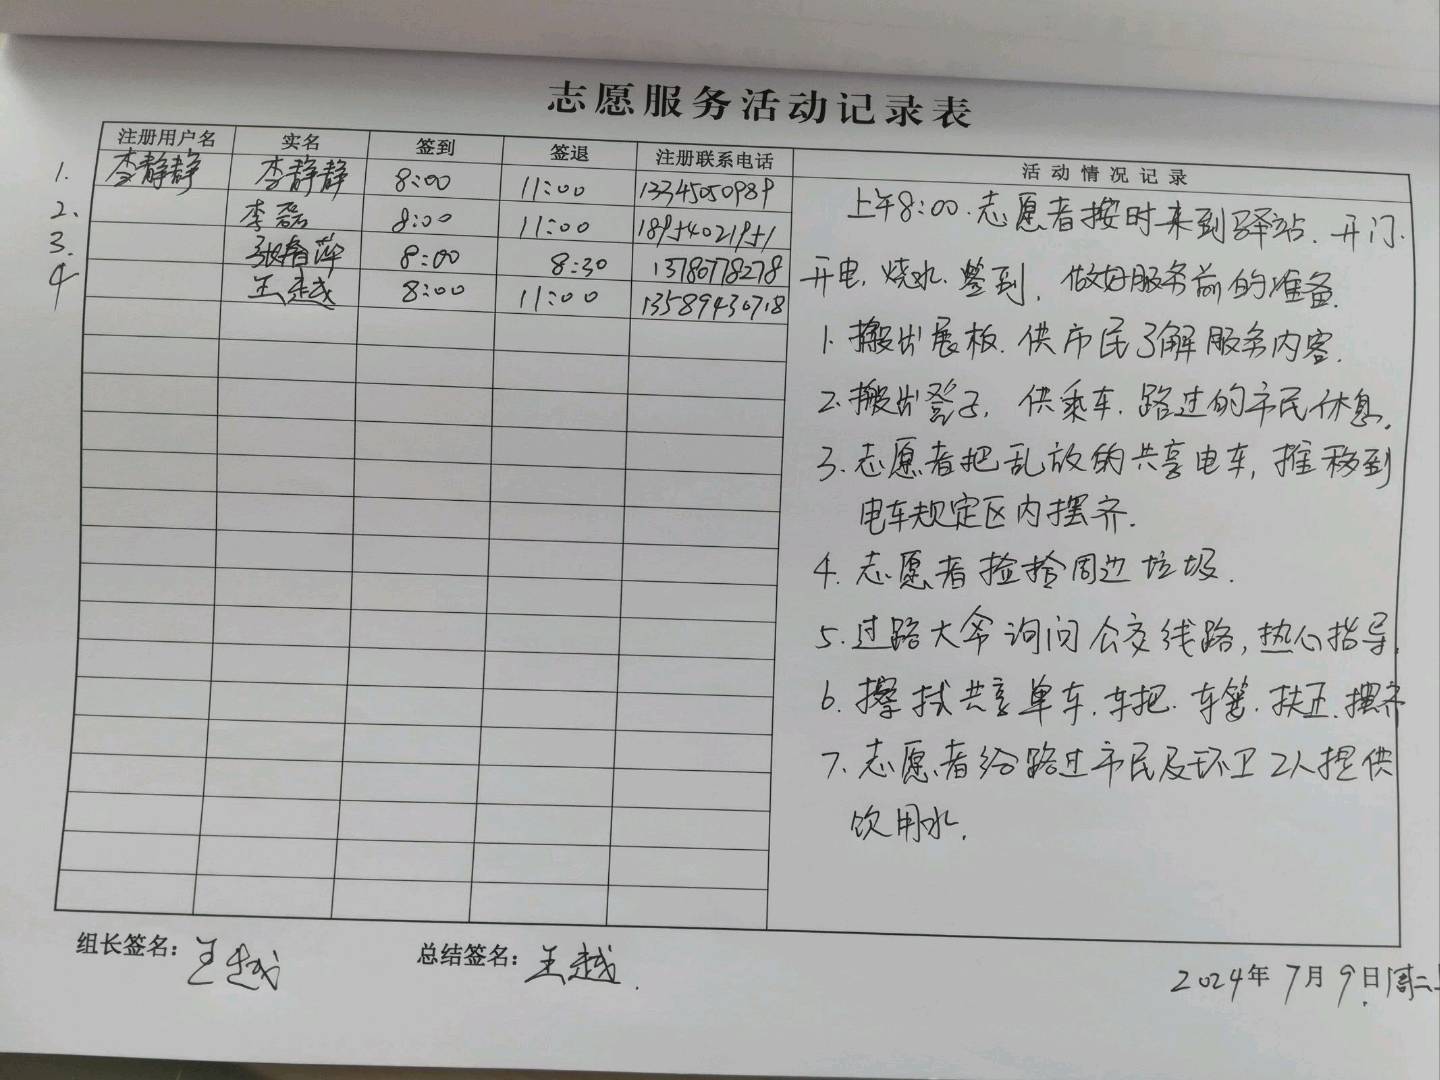 志愿服务活动记录表
注册用户名 实名 签到 签退 注册联系电话 活动情况记录
1. 李静静 李静静 8:00 11:00 13345050989
2. 李磊 8:00 11:00 18954021951
3. 8:00 8:30 13780778278
4 王越 8:00 11:00 13589430718
上午8:00.志愿者按时来到驿站.开门.
开电.烧水.签到.做好服务前的准备.
1.搬出展板.供市民了解服务内容.
2.搬出凳子,供乘车.路过的市民休息.
3.志愿者把乱放的共享电车,推移到
电车规定区内摆齐.
4.志愿者捡拾周边垃圾.
5.过路大爷询问公交线路,热心指导.
6.擦拭共享单车.车把.车篓.扶正.摆齐
7.志愿者给路过市民及环卫2人提供
饮用水.
组长签名：王越 总结签名：王越.
2024年7月9日周二